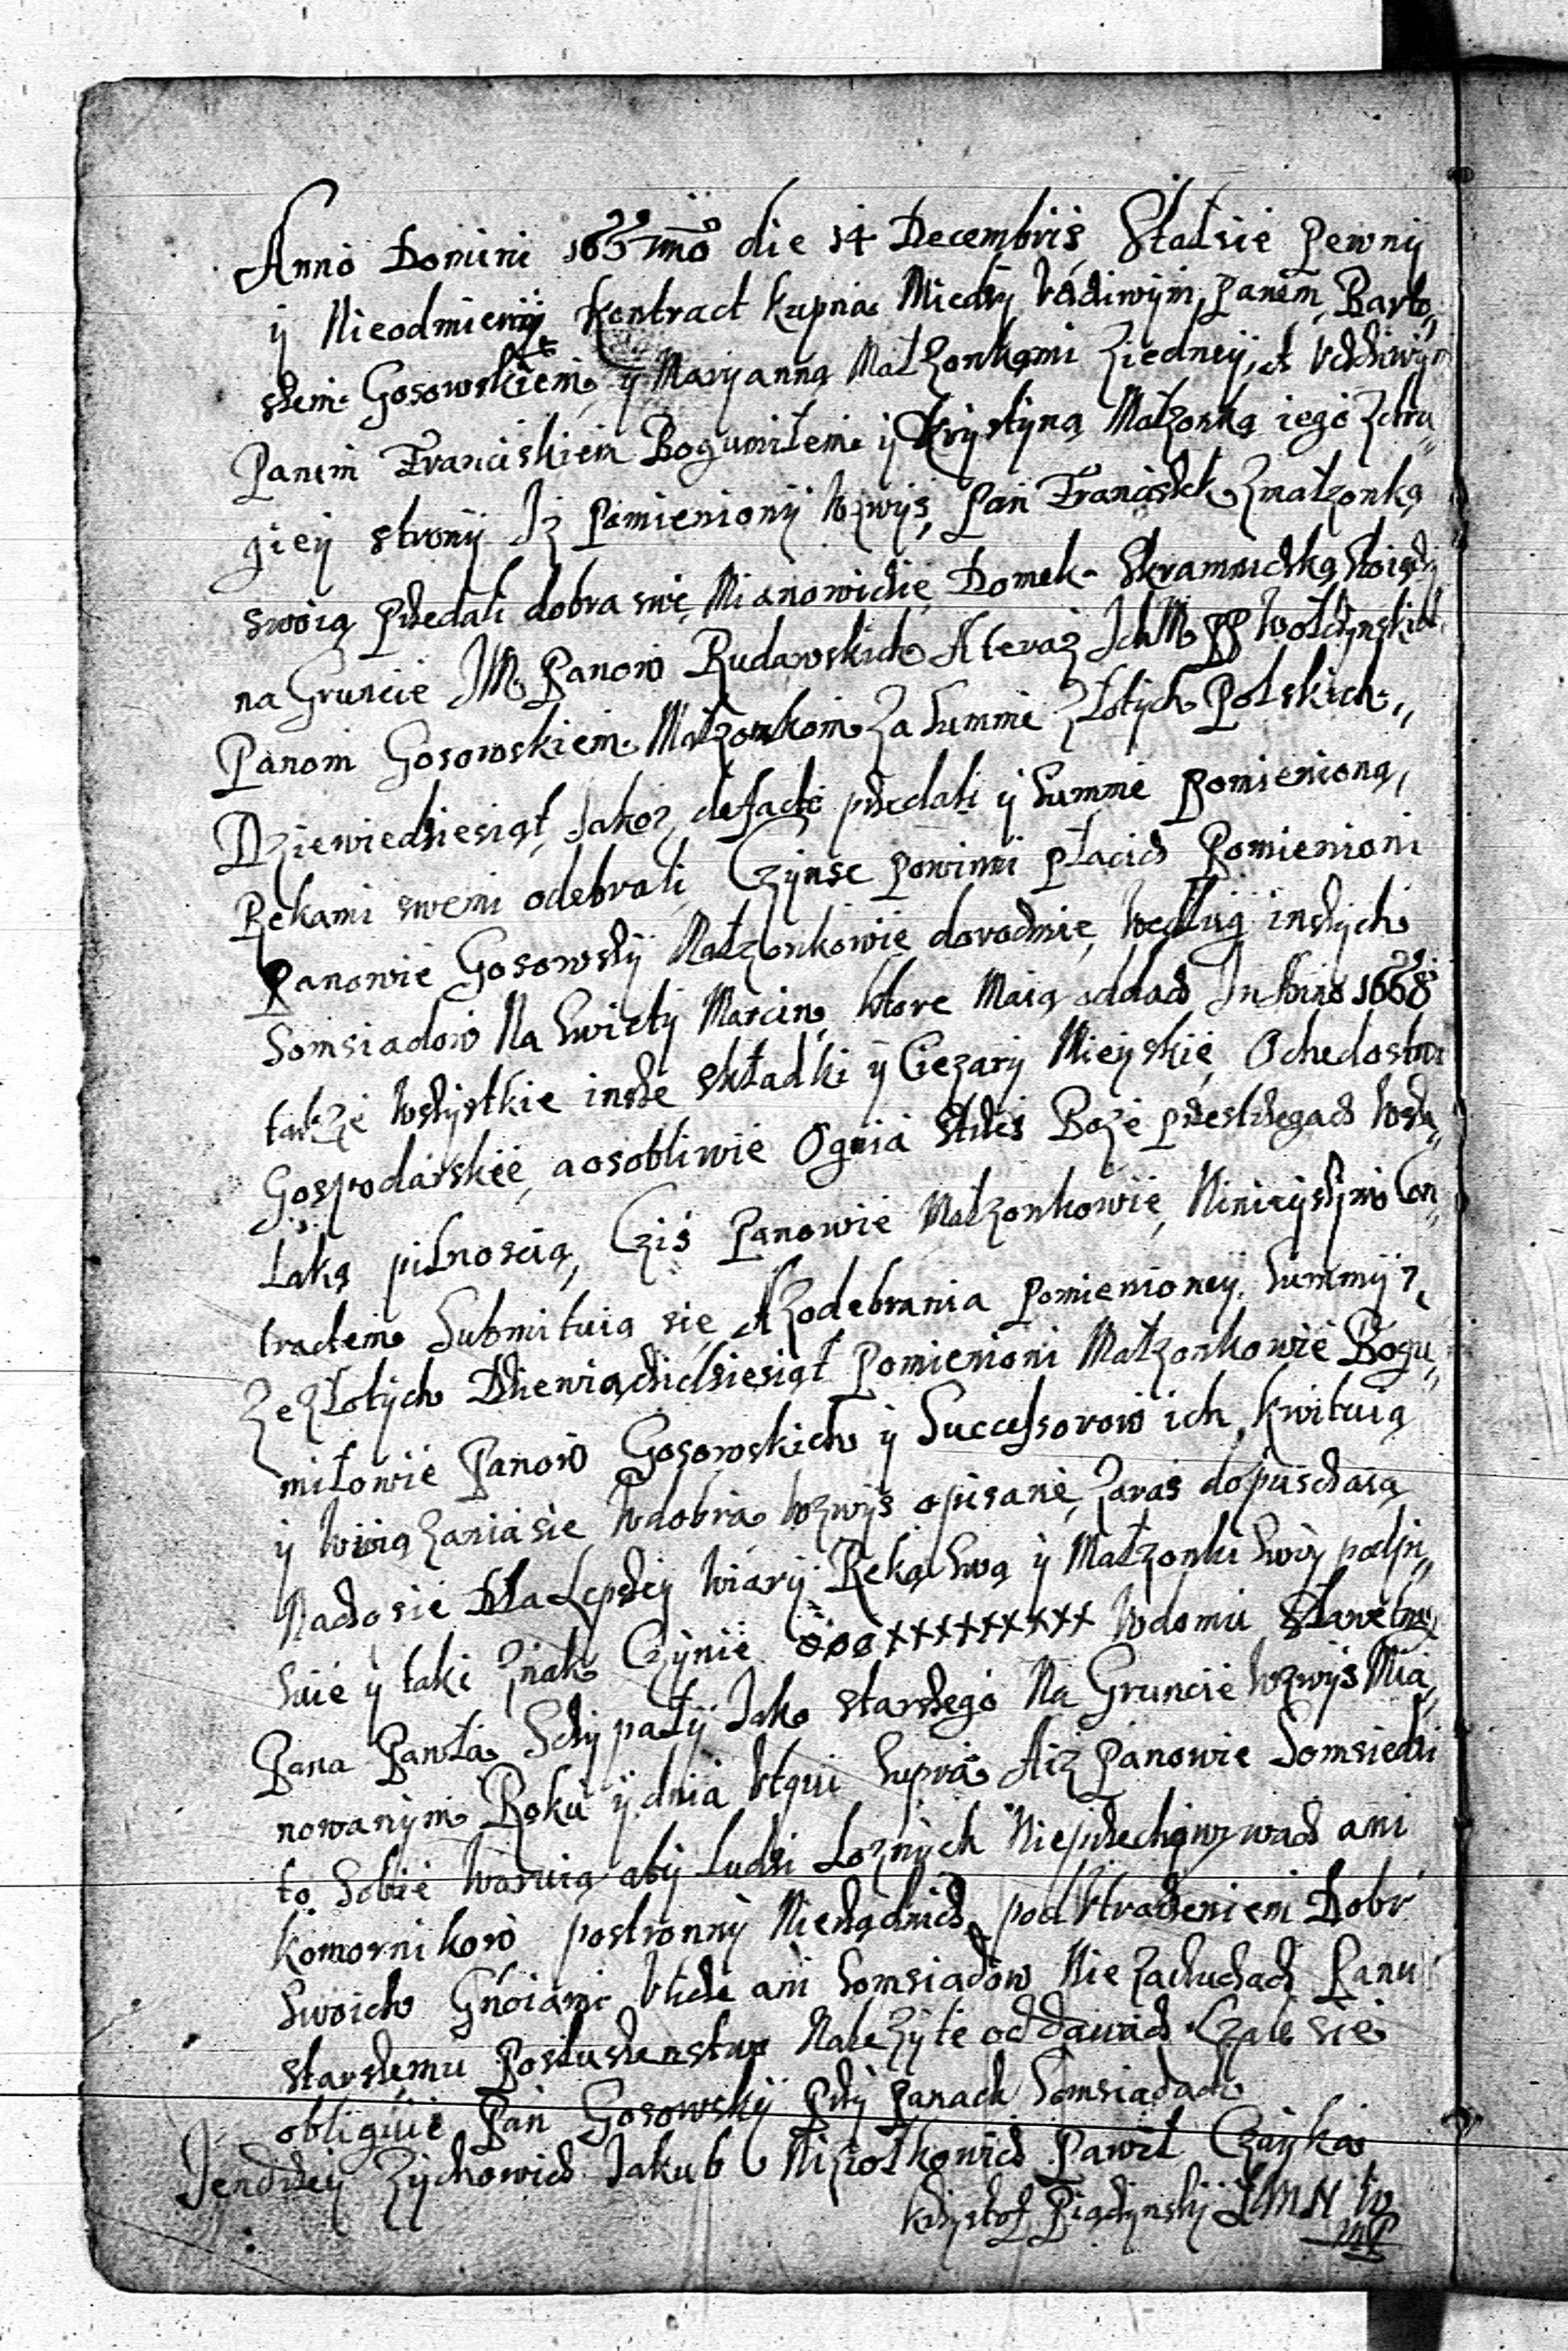 Anno Domini 1667mo die 14 Decembris Stałsie pewny
y Nieodmienny Kontract kupna Miedzy Vcciwym Panem Barto„
szem Gosowskiem y Maryanną Małzonkami Ziedney, A Vcciwym
Panem Franciskiem Bogumiłem y Krystyną Małzonką iego Zdru„
giey strony Iz pomieniony wzwys Pan Franciszek Zmałzonką
swoią przedali dobra swe Mianowicie Domek Skramnicką Stoiący
na Gruncie JM Panow Rudawskich A teraz Ich M PP Wołczynskich
Panom Gosowskiem Małzonkom Za Summe Złotych Polskich„
Dziewiedziesiąt, Jakoz defacto przedali y Summe pomienioną,
Rekami swemi odebrali, Czynsc powinni płacic Pomienioni
Panowie Gosowscy Małzonkowie dorocznie, według inszych
Somsiadow Na Swiety Marcin, ktore Maią oddac In Anno 1668
takze wszystkie insze składki y Ciezary Mieyskie, Ochedostwa
Gospodarskie, a osobliwie Ognia strzes Boze przestrzegac wsze„
laką pilnoscią, Cziś Panowie Małzonkowie, Ninieyszym Con„
tractem Submituią się A Zodebrania pomienioney Summy
Ze Złotych Dziewiącdziesiąt Pomienioni Małzonkowie Bogu„
miłowie Panow Gosowskich y Successorow ich, kwituią
y Wwiązaniasie Wdobra wzwys opisane, Zaras dopusczaią
Naco sie Dla Lepszey wiary Reką Swą y Małzonki Swey podpi„
suie y taki Znak Czynie ooo+++++++++ Wdomu Sławetnego
Pana Pawła Sczypały Jako starszego Na Gruncie Wzwys Mia„
nowanym Roku y dnia Vtqui Supra Aiz Panowie Somsiedzi
to Sobie Waruią aby Ludzi Loznych Nieprzechowywac ani
komornikow postronny pod Vtraceniem Dobr
Swoich Gnoiami Vlice ani Somsiadow Nie Panu
starszemu Posłuszenstwo Nalezyte oddawac Czale sie
obliguie Pan Gosowsky Przy Panach Somsiadach
Jendrzey Zychowicz Jakub Niziołkowicz Paweł Czayka
Krzystof Piączynsky